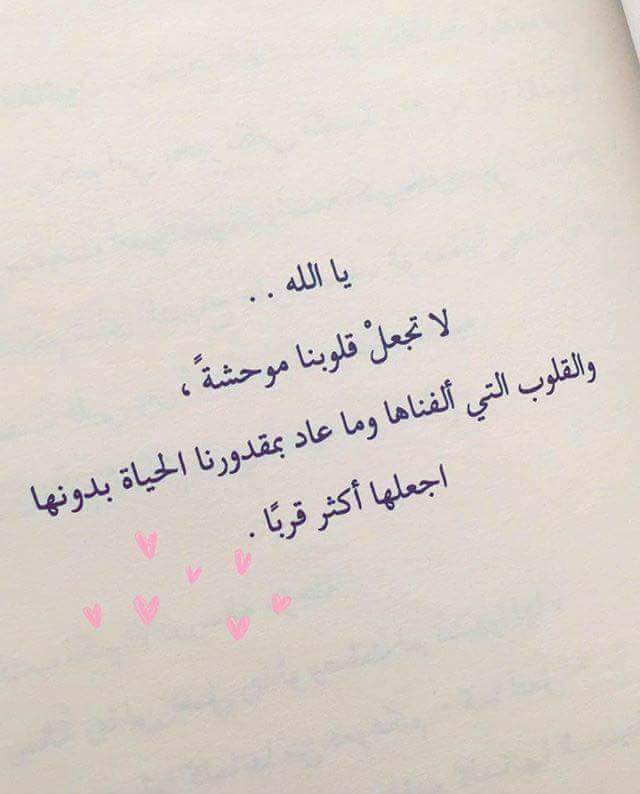 يا الله . .
لا تجعلْ قلوبنا موحشةً ،
والقلوب التي ألفناها وما عاد بمقدورنا الحياة بدونها
اجعلها أكثر قربًا .